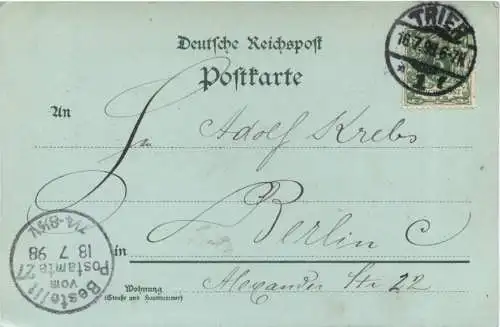 Deutsche Reichspost
Postkarte
TRIER
16.7.98.6-7N.
* 1 f
An Hn Adolf Krebs
in Berlin C
Wohnung
(Straße und Hausnummer)
Alexander Str 22
Bestellt
vom
Postamte 27
18 7 98
7¼-8½V